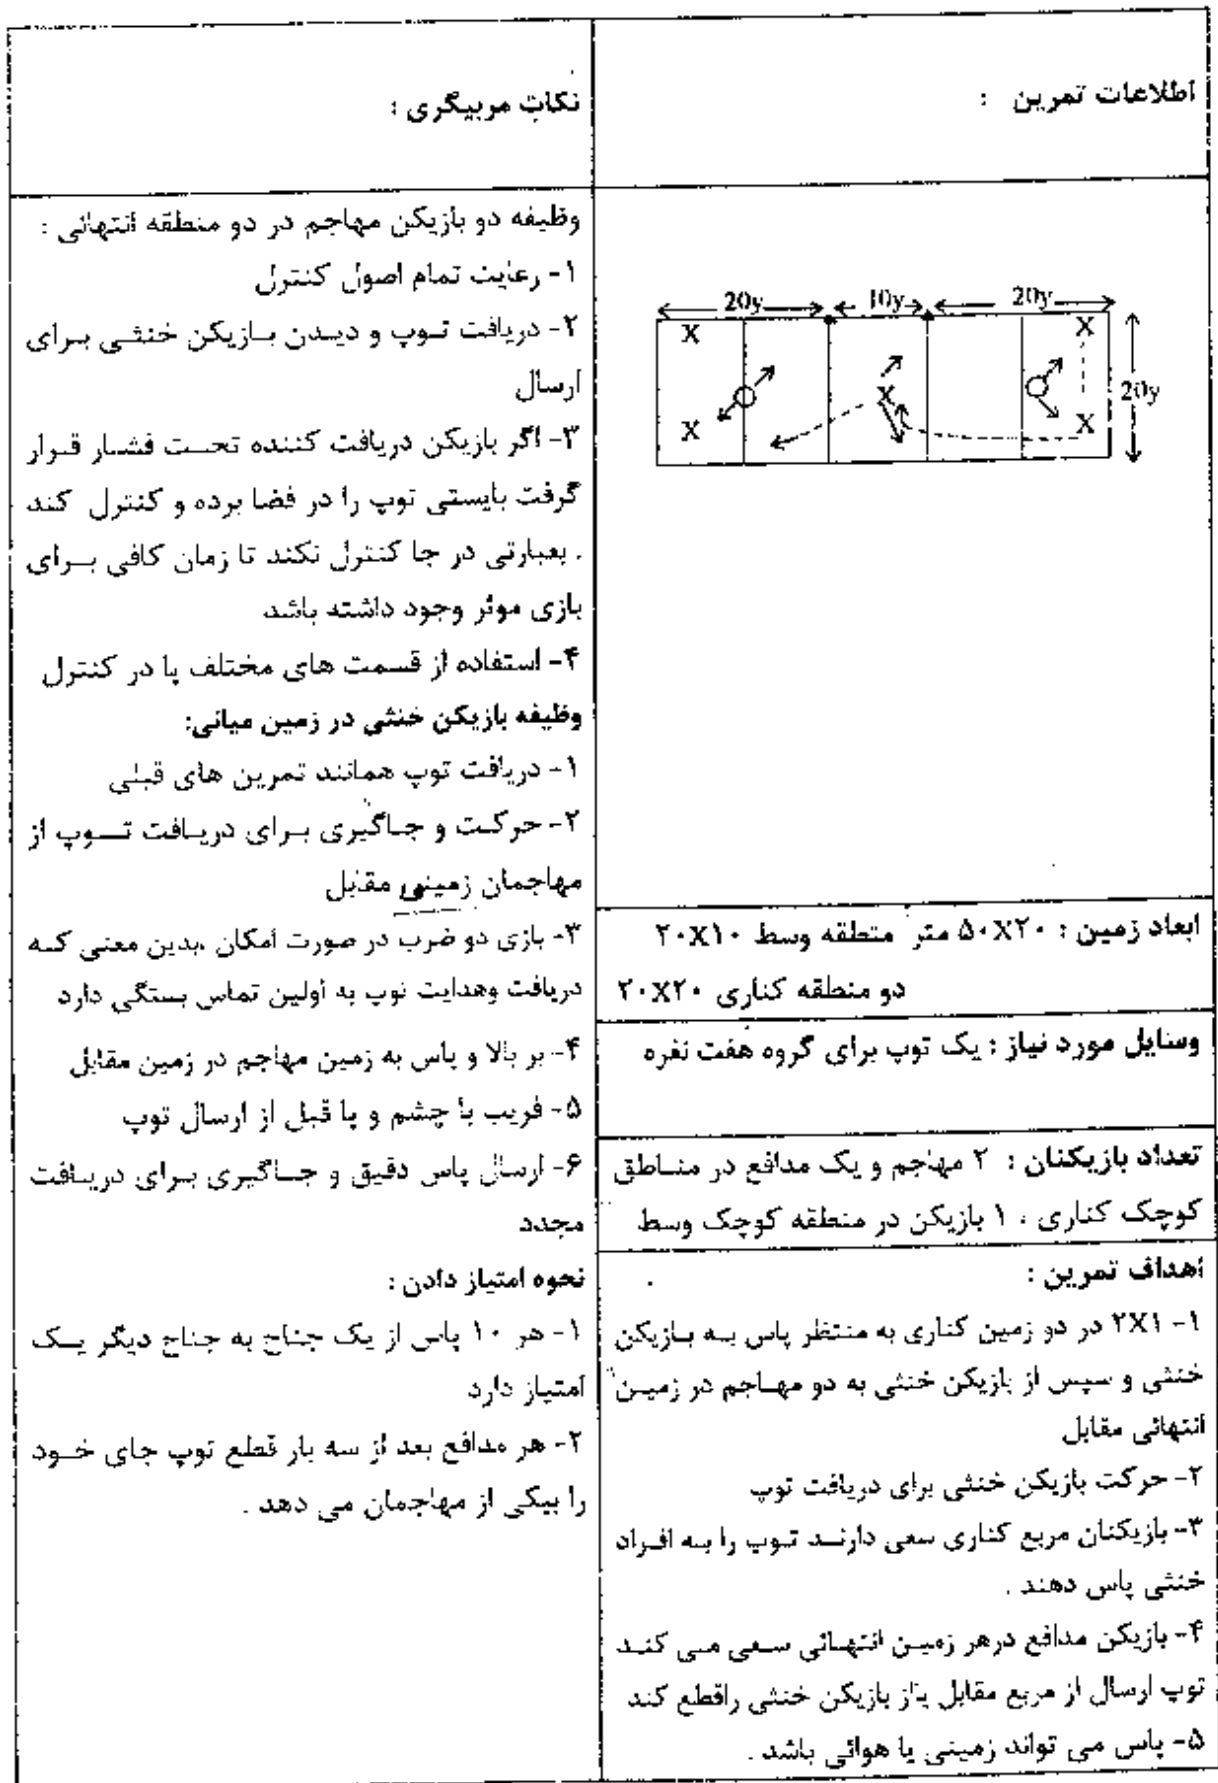 اطلاعات تمرین :
20y
10y
20y
X
X
X
20y
X
X
ابعاد زمین : ۵۰X۲۰ متر منطقه وسط ۲۰X۱۰
دو منطقه کناری ۲۰X۲۰
وسایل مورد نیاز : یک توپ برای گروه هفت نفره
تعداد بازیکنان : ۲ مهاجم و یک مدافع در مناطق
کوچک کناری ، ۱ بازیکن در منطقه کوچک وسط
اهداف تمرین :
۱- ۲X۱ در دو زمین کناری به منتظر پاس به بازیکن
خنثی و سپس از بازیکن خنثی به دو مهاجم در زمین
انتهائی مقابل
۲- حرکت بازیکن خنثی برای دریافت توپ
۳- بازیکنان مربع کناری سعی دارند توپ را به افراد
خنثی پاس دهند .
۴- بازیکن مدافع درهر زمین انتهائی سعی می کند
توپ ارسال از مربع مقابل یااز بازیکن خنثی راقطع کند
۵- پاس می تواند زمینی یا هوائی باشد .
نکات مربیگری :
وظیفه دو بازیکن مهاجم در دو منطقه انتهائی :
۱- رعایت تمام اصول کنترل
۲- دریافت توپ و دیدن بازیکن خنثی برای
ارسال
۳- اگر بازیکن دریافت کننده تحت فشار قرار
گرفت بایستی توپ را در فضا برده و کنترل کند
. بعبارتی در جا کنترل نکند تا زمان کافی برای
بازی موثر وجود داشته باشد
۴- استفاده از قسمت های مختلف پا در کنترل
وظیفه بازیکن خنثی در زمین میانی:
۱- دریافت توپ همانند تمرین های قبلی
۲- حرکت و جاگیری برای دریافت توپ از
مهاجمان زمینی مقابل
۳- بازی دو ضرب در صورت امکان ،بدین معنی که
دریافت وهدایت توپ به اولین تماس بستگی دارد
۴- بر بالا و پاس به زمین مهاجم در زمین مقابل
۵- فریب با چشم و پا قبل از ارسال توپ
۶- ارسال پاس دقیق و جاگیری برای دریافت
مجدد
نحوه امتیاز دادن :
۱- هر ۱۰ پاس از یک جناح به جناح دیگر یک
امتیاز دارد
۲- هر مدافع بعد از سه بار قطع توپ جای خود
را بیکی از مهاجمان می دهد .